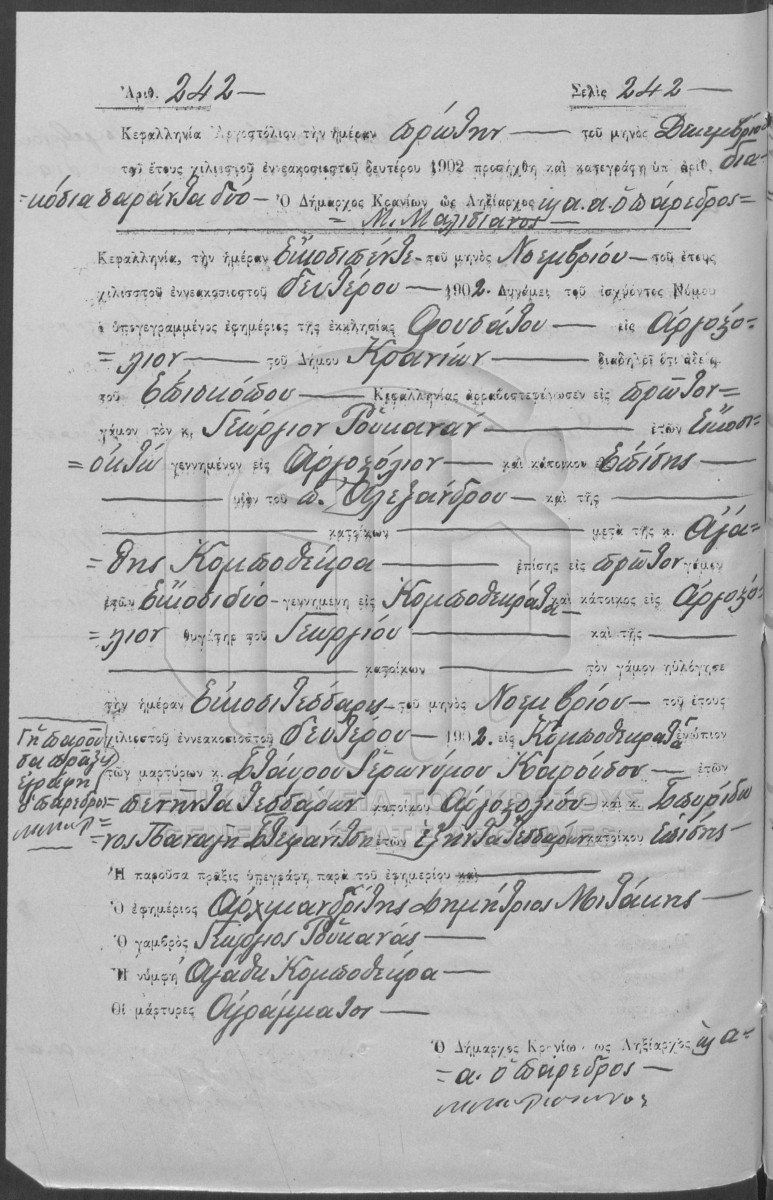 Ἀριθ. 242 — Σελὶς 242 —
Κεφαλληνία Ἀργοστόλιον τὴν ἡμέραν πρώτην — τοῦ μηνὸς Δεκεμβρίου
τοῦ ἔτους χιλιοστοῦ ἐννεακοσιοστοῦ δευτέρου 1902 προσήχθη καὶ κατεγράφη ὑπ ἀριθ. δια=
=κόσια σαράντα δυό — Ὁ Δήμαρχος Κρανίων ὡς Ληξίαρχος α. α. ὁ πάρεδρος=
= Μ. Μαλισιάνος —
Κεφαλληνία, τὴν ἡμέραν εἰκοσιπέντε — τοῦ μηνὸς Νοεμβρίου — τοῦ ἔτους
χιλιοστοῦ ἐννεακοσιοστοῦ δευτέρου — 1902. Δυνάμει τοῦ ἰσχύοντος Νόμου
ὁ ὑπογεγραμμένος ἐφημέριος τῆς ἐκκλησίας — εἰς Ἀργοστό=
=λιον — τοῦ Δήμου Κρανίων — διαδηλοῖ ὅτι ἀδείᾳ
τοῦ Ἐπισκόπου — Κεφαλληνίας ἀρραβοστεφάνωσεν εἰς πρῶτον=
γάμον τὸν κ. Γεώργιον — ἐτῶν εἴκοσι=
=οκτώ γεννημένον εἰς Ἀργοστόλιον — καὶ κάτοικον ἐπίσης —
— υἱὸν τοῦ π. Ἀλεξάνδρου — καὶ τῆς —
— κατοίκων — μετὰ τῆς κ. Ἀγά=
=θης Κομποθέκρα — ἐπίσης εἰς πρῶτον γάμον
ἐτῶν εἴκοσι δυό — γεννημένη εἰς Κομποθεκράτα — καὶ κάτοικος εἰς Ἀργοστό=
=λιον θυγάτηρ τοῦ Γεωργίου — καὶ τῆς —
— κατοίκων — τὸν γάμον ηὐλόγησε
τὴν ἡμέραν εἰκοσιτέσσαρις — τοῦ μηνὸς Νοεμβρίου — τοῦ ἔτους
χιλιοστοῦ ἐννεακοσιοστοῦ δευτέρου — 1902. εἰς Κομποθεκράτα ἐνώπιον
τῶν μαρτύρων κ. Σταύρου Γερωνύμου Καρούσου — ἐτῶν
=πενήντα τεσσάρων κατοίκου Ἀργοστολίου — καὶ κ. Σπυρίδω
=νος Παναγῆ Στεφανίτση ἐτῶν ἑξήντα τεσσάρων κατοίκου ἐπίσης —
Ἡ παροῦσα
πρᾶξις
ἐγράφη
ὁ πάρεδρος
Ἡ παροῦσα πρᾶξις ὑπεγράφη παρὰ τοῦ ἐφημερίου καὶ —
Ὁ ἐφημέριος Ἀρχιμανδρίτης Δημήτριος Μιτάκης —
Ὁ γαμβρὸς Γεώργιος —
Ἡ νύμφη Ἀγάθη Κομποθέκρα —
Οἱ μάρτυρες Ἀγράμματοι —
Ὁ Δήμαρχος Κρανίων ὡς Ληξίαρχος α=
=α. ὁ πάρεδρος —
ΓΕΝΙΚΑ ΑΡΧΕΙΑ ΤΟΥ ΚΡΑΤΟΥΣ
GENERAL STATE ARCHIVES